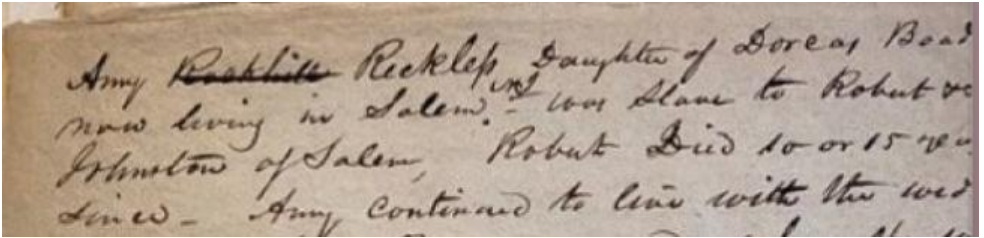 Amy Rockhill Reckless, Daughter of Dorcas Boad
now living in Salem. NJ - was Slave to Robert
Johnston of Salem, Robert Died 10 or 15 yea
since - Amy continued to live with the wid